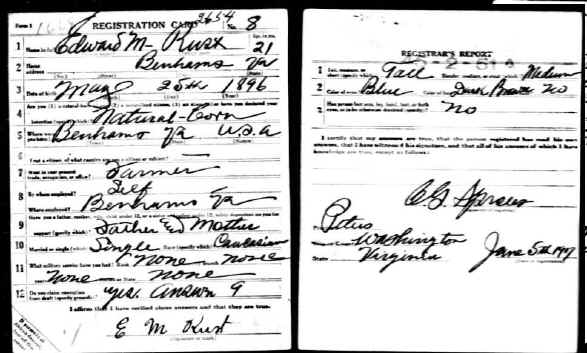 Form 1 REGISTRATION CARD 2654 No. 8
1 Name in full Edward M Kust Age, in yrs. 21
2 Home address Benhams Va
3 Date of birth May 25th 1896
4 Are you (1) a natural-born citizen, (2) a naturalized citizen, (3) an alien, (4) or have you declared your
intention (specify which)? Natural-Born
5 Where were you born? Benhams Va U.S.A
6 If not a citizen, of what country are you a citizen or subject?
7 What is your present trade, occupation, or office? Farmer
8 By whom employed? Self
Where employed? Benhams Va
9 Have you a father, mother, wife, child under 12, or a sister or brother under 12, solely dependent on you for
support (specify which)? Father & Mother
10 Married or single (which)? Single Race (specify which)? Caucasian
11 What military service have you had? Rank None none
years None none
12 Do you claim exemption from draft (specify grounds)? yes. Answer 9
I affirm that I have verified above answers and that they are true.
E M Kust
REGISTRAR'S REPORT
1 Tall, medium, or short (specify which)? Tall Slender, medium, or stout (which)? Medium
2 Color of eyes? Blue Color of hair? Dark Brown No
3 Has person lost arm, leg, hand, foot, or both eyes, or is he otherwise disabled (specify)?
No
I certify that my answers are true, that the person registered has read his own
answers, that I have witnessed his signature, and that all of his answers of which I have
knowledge are true, except as follows:
Washington
State Virginia June 5th 1917